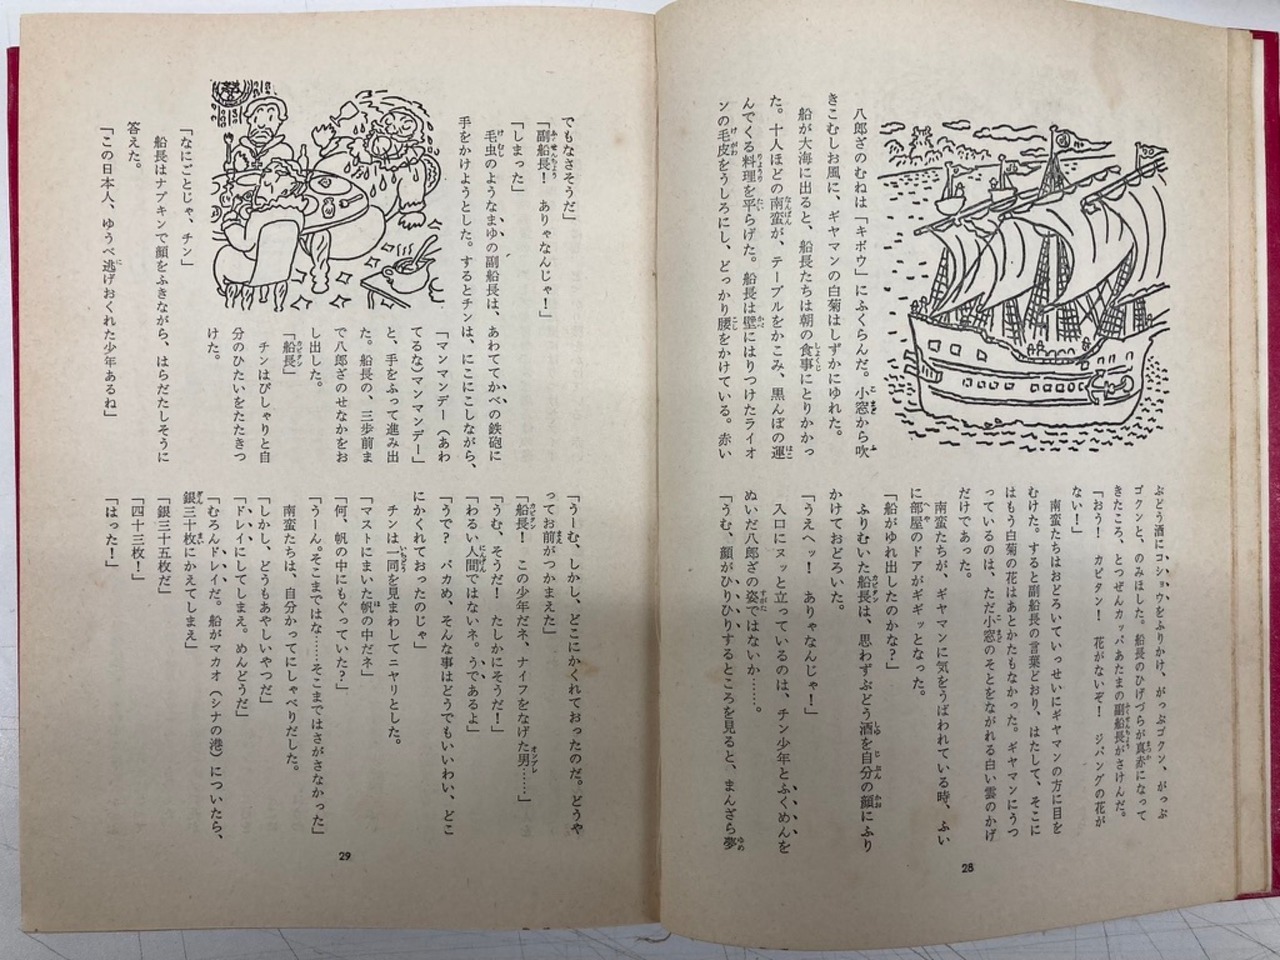 八郎ざのむねは「キボウ」にふくらんだ。小窓から吹
きこむしお風に、ギヤマンの白菊はしずかにゆれた。
船が大海に出ると、船長たちは朝の食事にとりかかっ
た。十人ほどの南蛮が、テーブルをかこみ、黒んぼの運
んでくる料理を平らげた。船長は壁にはりつけたライオ
ンの毛皮をうしろにし、どっかり腰をかけている。赤い
ぶどう酒にコショウをふりかけ、がっぷゴクン、がっぷ
ゴクンと、のみほした。船長のひげづらが真赤になって
きたころ、とつぜんカッパあたまの副船長がさけんだ。
「おう！　カピタン！　花がないぞ！　ジパングの花が
ない！」
南蛮たちはおどろいていっせいにギヤマンの方に目を
むけた。すると副船長の言葉どおり、はたして、そこに
はもう白菊の花はあとかたもなかった。ギヤマンにうつ
っているのは、ただ小窓のそとをながれる白い雲のかげ
だけであった。
南蛮たちが、ギヤマンに気をうばわれている時、ふい
に部屋のドアがギギッとなった。
「船がゆれ出したのかな？」
ふりむいた船長は、思わずぶどう酒を自分の顔にふり
かけておどろいた。
「うえヘッ！　ありゃなんじゃ！」
入口にヌッと立っているのは、チン少年とふくめんを
ぬいだ八郎ざの姿ではないか……。
「うむ、顔がひりひりするところを見ると、まんざら夢
28
でもなさそうだ」
「副船長！　ありゃなんじゃ！」
「しまった」
毛虫のようなまゆの副船長は、あわててかべの鉄砲に
手をかけようとした。するとチンは、にこにこしながら、
「マンマンデー（あわ
てるな）マンマンデー」
と、手をふって進み出
た。船長の、三歩前ま
で八郎ざのせなかをお
し出した。
「船長」
チンはぴしゃりと自
分のひたいをたたきつ
けた。
「なにごとじゃ、チン」
船長はナプキンで顔をふきながら、はらだたしそうに
答えた。
「この日本人、ゆうべ逃げおくれた少年あるね」
「うーむ、しかし、どこにかくれておったのだ。どうや
ってお前がつかまえた」
「船長！　この少年だネ、ナイフをなげた男……」
「うむ、そうだ！　たしかにそうだ！」
「わるい人間ではないネ。うであるよ」
「うで？　バカめ、そんな事はどうでもいいわい、どこ
にかくれておったのじゃ」
「マストにまいた帆の中だネ」
チンは一同を見まわしてニヤリとした。
「何、帆の中にもぐっていた？」
「うーん。そこまではな……そこまではさがさなかった」
南蛮たちは、自分かってにしゃべりだした。
「しかし、どうもあやしいやつだ」
「ドレイにしてしまえ。めんどうだ」
「むろんドレイだ。船がマカオ（シナの港）についたら、
銀三十枚にかえてしまえ」
「銀三十五枚だ」
「四十三枚！」
「はった！」
29